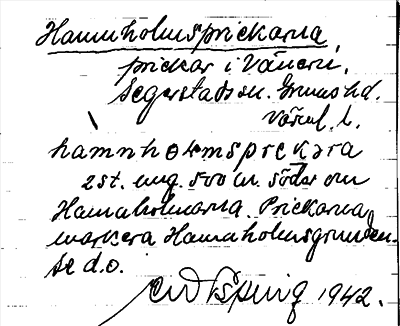 Hamnholmsprickarna,
prickar i Vänern.
Segerstads sn. Grums hd.
Värml. l.
hamnholmsprekara
2 st. ung. 500 m. söder om
Hamnholmarna. Prickarna
markera Hamnholmsgrunden.
se d.o.
1942.